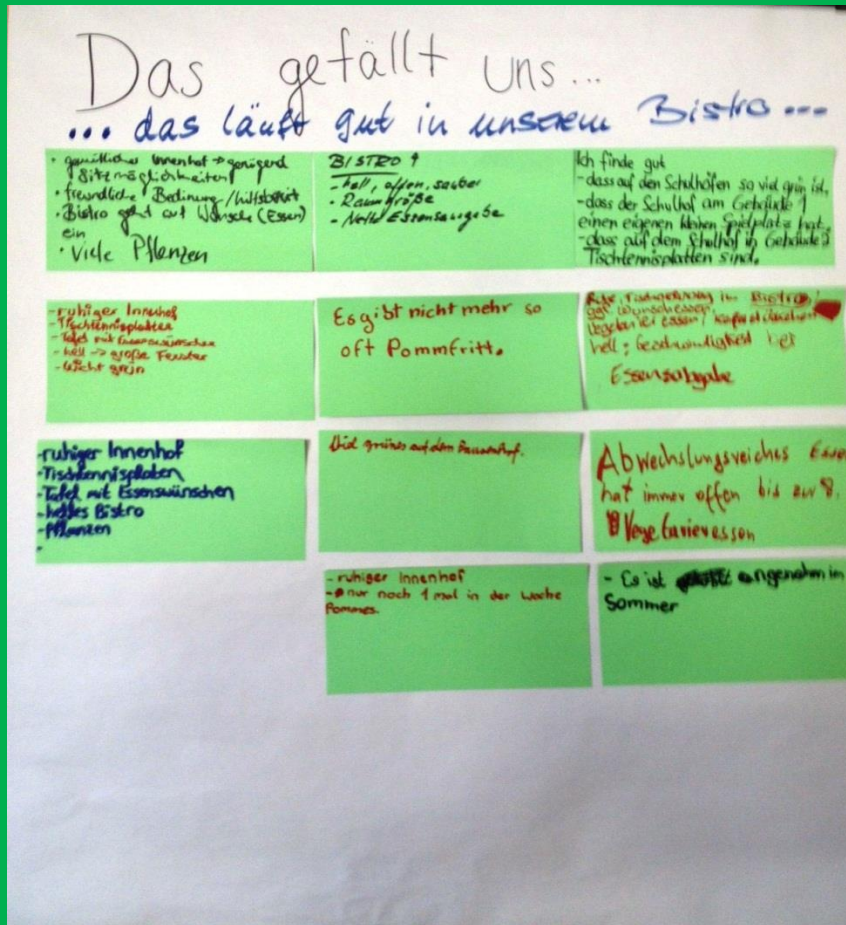 Das gefällt uns...
... das läuft gut in unserem Bistro ...
• gemütlicher Innenhof → genügend
Sitzmöglichkeiten
• freundliche Bedinung /hilfsbereit
• Bistro geht auf Wünsche (Essen)
ein
• Viele Pflanzen
BISTRO
- hell, offen, sauber
- Raumgröße
- Nette Essensausgabe
Ich finde gut
- dass auf den Schulhöfen so viel grün ist,
- dass der Schulhof am Gebäude 1
einen eigenen kleinen Spielplatz hat.
- dass auf dem Schulhof in Gebäude
Tischtennisplatten sind.
- ruhiger Innenhof
- Tischtennisplatten
- Tafel mit Essenswünschen
- hell → große Fenster
- grün
Es gibt nicht mehr so
oft Pommfritt.
im Bistro,
ggf. Wunschessen,
hell; Geschwindigkeit bei
Essensabgabe
- ruhiger Innenhof
- Tischtennisplaten
- Tafel mit Essenswünschen
- helles Bistro
- Pflanzen
-
Viel grünes auf dem
Abwechslungsreiches Essen
hat immer offen bis zur 8.
Vegetarieressen
- ruhiger Innenhof
- nur noch 1 mal in der Woche
Pommes.
- Es ist angenehm im
Sommer